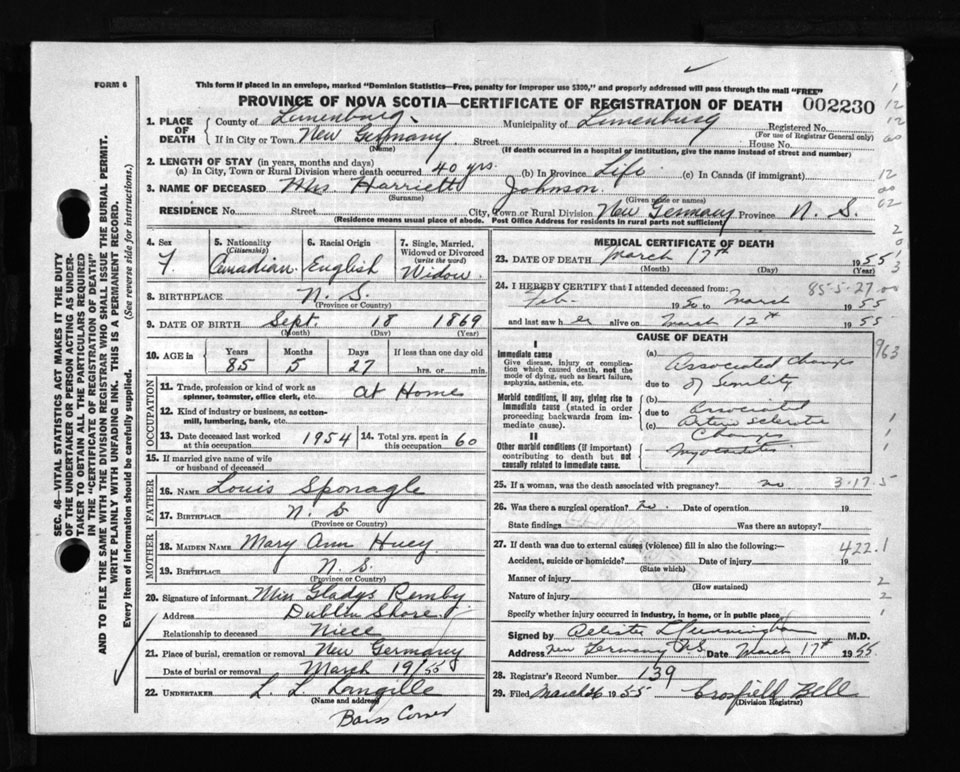 FORM 6
This form if placed in an envelope, marked "Dominion Statistics—Free, penalty for improper use $300," and properly addressed will pass through the mail "FREE"
PROVINCE OF NOVA SCOTIA—CERTIFICATE OF REGISTRATION OF DEATH 002230
1. PLACE OF DEATH
County of Lunenburg. Municipality of Lunenburg Registered No.
(For use of Registrar General only)
If in City or Town New Germany. Street House No.
(Name) (If death occurred in a hospital or institution, give the name instead of street and number)
2. LENGTH OF STAY (in years, months and days)
(a) In City, Town or Rural Division where death occurred 40 yrs. (b) In Province Life (c) In Canada (if immigrant)
3. NAME OF DECEASED Mrs Harriett Johnson.
(Surname) (Given name or names)
RESIDENCE No. Street City, Town or Rural Division New Germany Province N. S.
(Residence means usual place of abode. Post Office Address for residents in rural parts not sufficient)
4. Sex
F.
5. Nationality
(Citizenship)
Canadian
6. Racial Origin
English
7. Single, Married, Widowed or Divorced
(write the word)
Widow.
8. BIRTHPLACE N. S.
(Province or Country)
9. DATE OF BIRTH Sept. 18 1869
(Month) (Day) (Year)
10. AGE in
Years Months Days If less than one day old
85 5 27 hrs. or min.
OCCUPATION
11. Trade, profession or kind of work as spinner, teamster, office clerk, etc. At Home
12. Kind of industry or business, as cotton-mill, lumbering, bank, etc.
13. Date deceased last worked at this occupation 1954 14. Total yrs. spent in this occupation 60
15. If married give name of wife or husband of deceased
FATHER
16. NAME Louis Sponagle
17. BIRTHPLACE N. S
(Province or Country)
MOTHER
18. MAIDEN NAME Mary Ann Huey
19. BIRTHPLACE N. S.
(Province or Country)
20. Signature of informant Miss Gladys Remby
Address Dublin Shore
Relationship to deceased Niece
21. Place of burial, cremation or removal New Germany
Date of burial or removal March 19/55
22. UNDERTAKER L. L. Langille
(Name and address)
Barss Corner
MEDICAL CERTIFICATE OF DEATH
23. DATE OF DEATH March 17th 1955
(Month) (Day) (Year)
24. I HEREBY CERTIFY that I attended deceased from: 85-5-27.00
Feb. 1950 to March 1955
and last saw her alive on March 12th 1955
CAUSE OF DEATH
I
Immediate cause
Give disease, injury or complication which caused death, not the mode of dying, such as heart failure, asphyxia, asthenia, etc.
(a) Associated Changes
due to of Senility
Morbid conditions, if any, giving rise to immediate cause (stated in order proceeding backwards from immediate cause).
(b)
due to Associated
(c) Arterio Sclerotic
Changes
II
Other morbid conditions (if important) contributing to death but not causally related to immediate cause.
Myocarditis
963
25. If a woman, was the death associated with pregnancy? no 3-17-5
26. Was there a surgical operation? no. Date of operation 19
State findings Was there an autopsy?
27. If death was due to external causes (violence) fill in also the following:— 422.1
Accident, suicide or homicide? Date of injury 19
(State which)
Manner of injury
(How sustained)
Nature of injury
Specify whether injury occurred in industry, in home, or in public place
Signed by L Cunningham M.D.
Address New Germany N.S. Date March 17th 1955
28. Registrar's Record Number 139
29. Filed March 26 1955 Crosfield Bell
(Division Registrar)
SEC. 46—VITAL STATISTICS ACT MAKES IT THE DUTY OF THE UNDERTAKER OR PERSON ACTING AS UNDERTAKER TO OBTAIN ALL THE PARTICULARS REQUIRED IN THE "CERTIFICATE OF REGISTRATION OF DEATH" AND TO FILE THE SAME WITH THE DIVISION REGISTRAR WHO SHALL ISSUE THE BURIAL PERMIT.
WRITE PLAINLY WITH UNFADING INK. THIS IS A PERMANENT RECORD.
Every item of information should be carefully supplied. (See reverse side for instructions.)